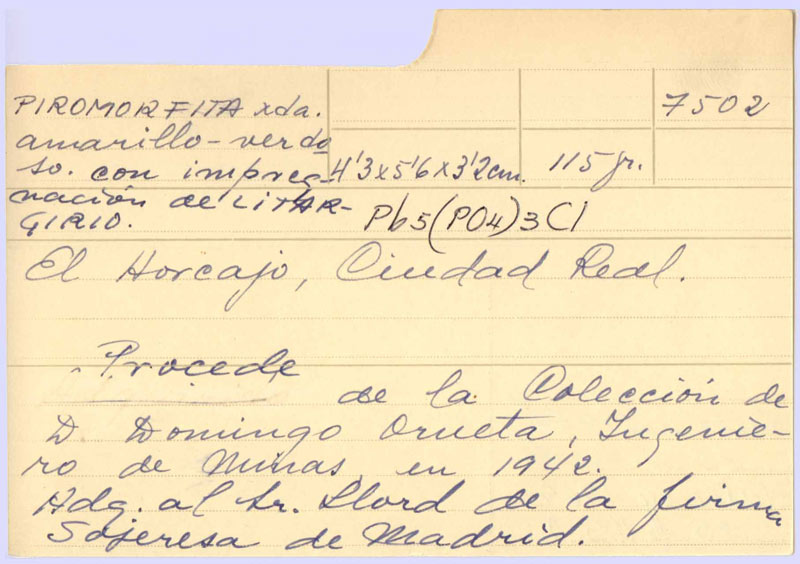 PIROMORFITA xda.
amarillo-verdo
so. con impreg-
nación de LITAR-
GIRIO.
4'3x5'6x3'2cm.
115 gr.
7502
Pb5(PO4)3Cl
El Horcajo, Ciudad Real.
Procede
de la Colección de
D. Domingo Orueta, Ingenie-
ro de Minas, en 1942.
Adq. al Sr. Llord de la firma
Sojeresa de Madrid.